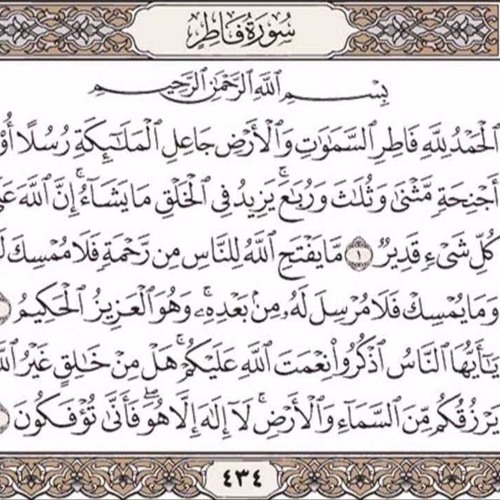 سُورَةُ فَاطِرٍ
بِسْمِ اللَّهِ الرَّحْمَٰنِ الرَّحِيمِ
الْحَمْدُ لِلَّهِ فَاطِرِ السَّمَٰوَٰتِ وَالْأَرْضِ جَاعِلِ الْمَلَٰٓئِكَةِ رُسُلًا
أَجْنِحَةٍ مَّثْنَىٰ وَثُلَٰثَ وَرُبَٰعَ ۚ يَزِيدُ فِى الْخَلْقِ مَا يَشَآءُ ۚ إِنَّ اللَّهَ
كُلِّ شَىْءٍ قَدِيرٌ ١ مَّا يَفْتَحِ اللَّهُ لِلنَّاسِ مِن رَّحْمَةٍ فَلَا مُمْسِكَ
وَمَا يُمْسِكْ فَلَا مُرْسِلَ لَهُۥ مِنۢ بَعْدِهِۦ ۚ وَهُوَ الْعَزِيزُ الْحَكِيمُ
يَٰٓأَيُّهَا النَّاسُ اذْكُرُوا۟ نِعْمَتَ اللَّهِ عَلَيْكُمْ ۚ هَلْ مِنْ خَٰلِقٍ غَيْرُ
يَرْزُقُكُم مِّنَ السَّمَآءِ وَالْأَرْضِ ۚ لَآ إِلَٰهَ إِلَّا هُوَ ۖ فَأَنَّىٰ تُؤْفَكُونَ
٤٣٤